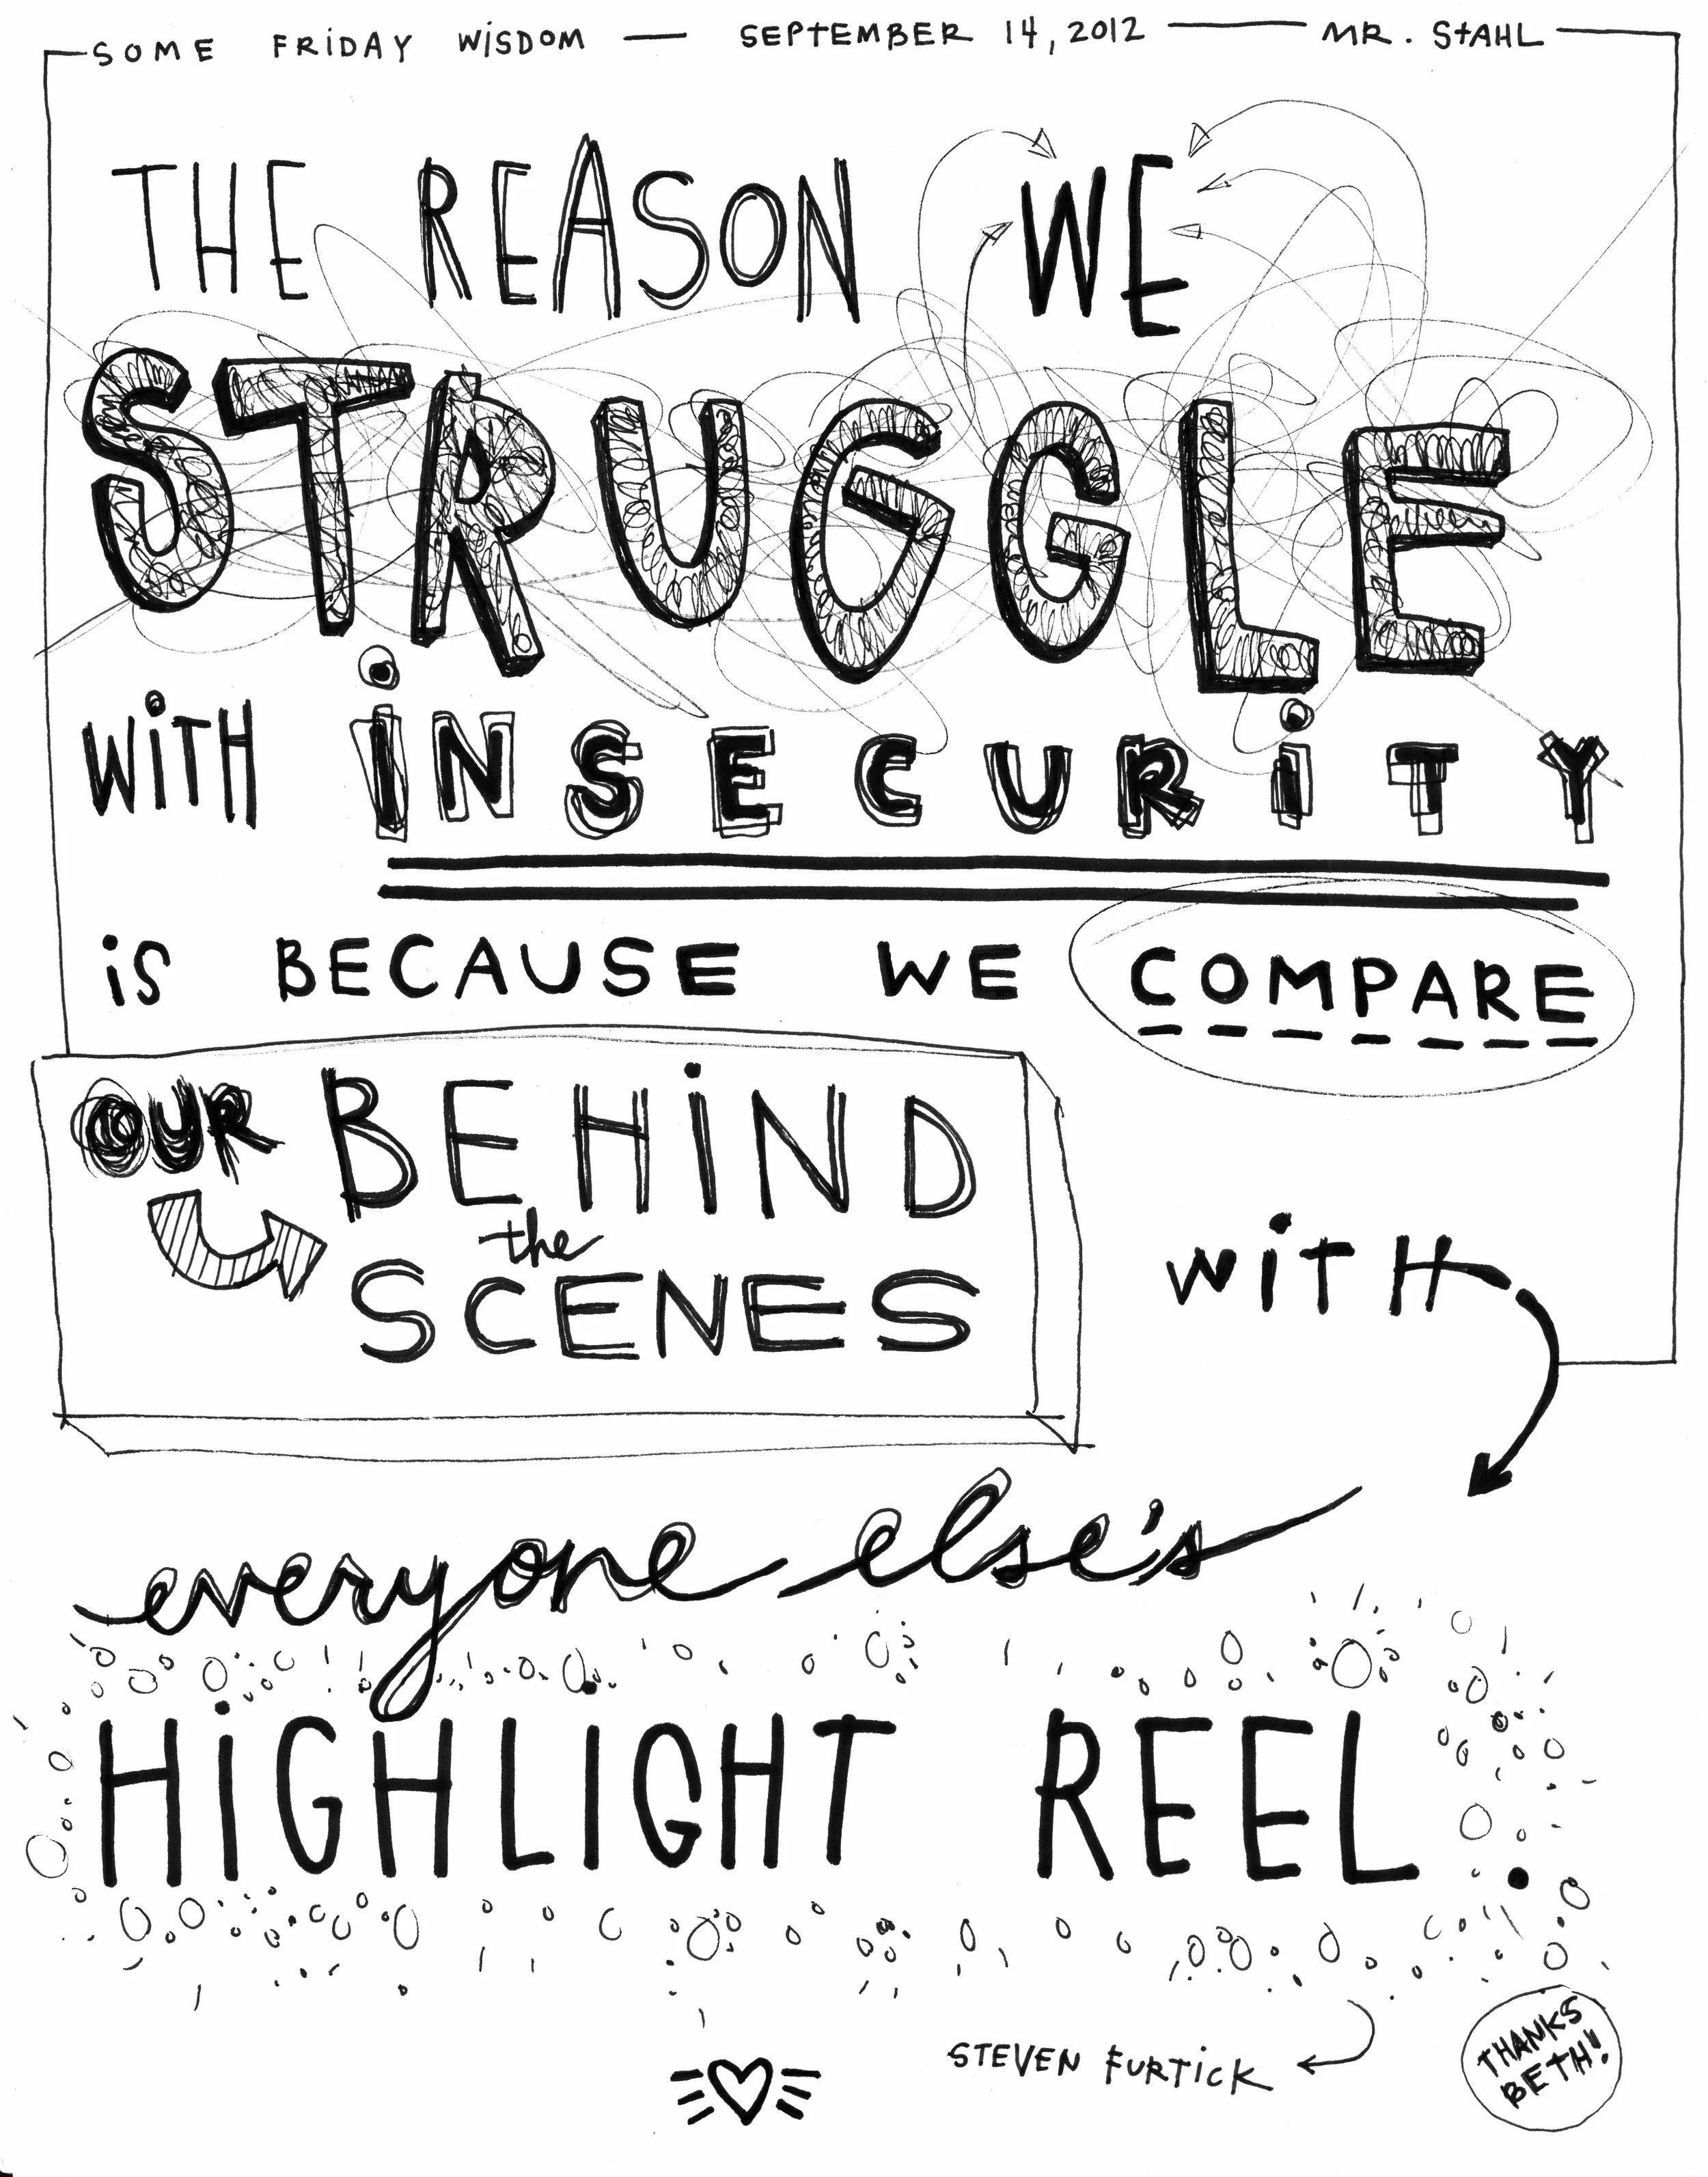 SOME FRIDAY WISDOM — SEPTEMBER 14, 2012 — MR. STAHL
THE REASON WE
STRUGGLE
WITH INSECURITY
IS BECAUSE WE COMPARE
OUR BEHIND
the
SCENES
WITH
everyone else's
HIGHLIGHT REEL
STEVEN FURTICK
THANKS
BETH!